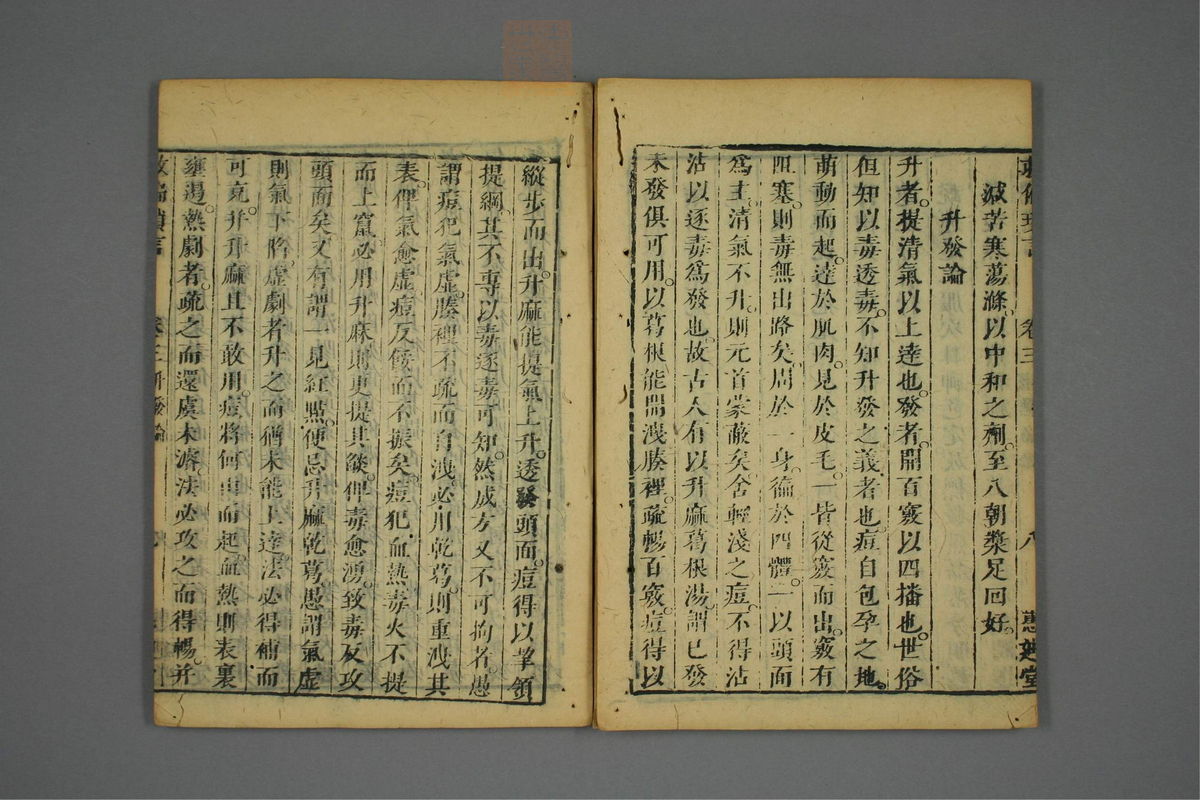 救偏瑣言 卷三 八 惠迪堂
減苦寒蕩滌。以中和之劑。至八朝漿足回好。
升發論
升者。提清氣以上達也。發者。開百竅以四播也。世俗
但知以毒透毒。不知升發之義者也。痘自包孕之地。
萌動而起。達於肌肉。見於皮毛。一皆從竅而出。竅有
阻塞。則毒無出路矣。周於一身。徧於四體。一以頭面
為主。清氣不升。則元首蒙蔽矣舍輕淺之痘。不得沾
沾以逐毒為發也。故古人有以升麻葛根湯。謂已發
未發俱可用。以葛根能開洩腠裡。疏暢百竅。痘得以
縱步而出。升麻能提氣上升。透發頭面。痘得以挈領
提綱。其不專以毒逐毒可知。然成方又不可拘者。愚
謂痘犯氣虛。腠裡不疏而自洩。必用乾葛。則重洩其
表。俾氣愈虛。痘反倭而不振矣。痘犯血熱毒火不提
而上竄。必用升麻。則更提其燄。俾毒愈湧。致毒反攻
頭面矣。又有謂一見紅點。便忌升麻乾葛。愚謂氣虛
則氣下陷。虛劇者升之而猶未能上達。法必得補而
可克。并升麻且不敢用。痘將何由而起。血熱則表裏
壅遏。熱劇者。疏之而還虞未濟。法必攻之而得暢。并
救偏瑣言 卷三升發論